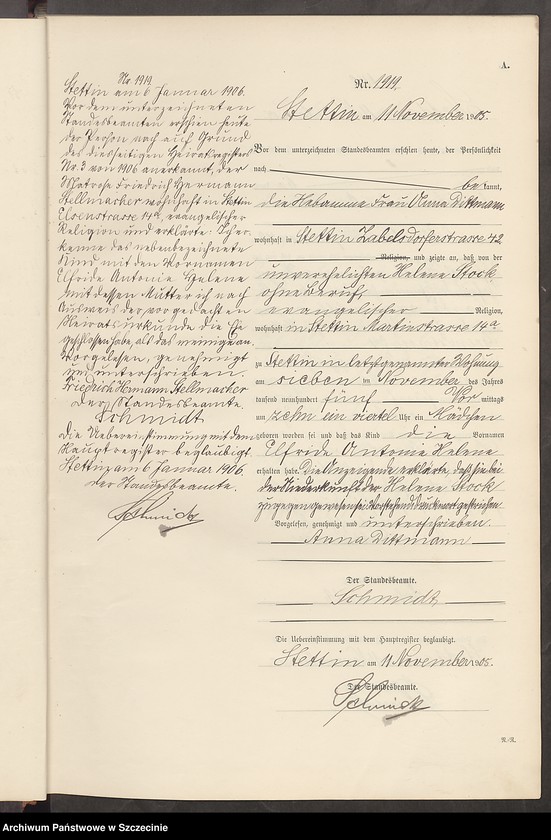 Nr. 1919
Stettin am 6 Januar 1906.
Vor dem unterzeichneten
Standesbeamten erschien heute
der Person nach auf Grund
des diesseitigen Heiratsregisters
Nr. 3 von 1906 anerkannt, der
Matrose Friedrich Hermann
Stellmacher wohnhaft in Stettin
Elsenstrasse 14a, evangelischer
Religion und erklärte: Ich er-
kenne das nebenbezeichnete
Kind mit den Vornamen
Elfride Antonie Helene
mit dessen Mutter ich nach
Ausweis der vorgedachten
Heiratsurkunde die Ehe
geschlossen habe, als das meinige an.
Vorgelesen, genehmigt
und unterschrieben.
Friedrich Hermann Stellmacher
Der Standesbeamte.
Schmidt
Die Uebereinstimmung mit dem
Hauptregister beglaubigt.
Stettin am 6 Januar 1906.
Der Standesbeamte.
Schmidt
A.
Nr. 1919.
Stettin am 11 November 1905.
Vor dem unterzeichneten Standesbeamten erschien heute, der Persönlichkeit
nach
be kannt,
die Hebamme Frau Anna Dittmann
wohnhaft in Stettin Zabelsdorferstrasse 42
Religion, und zeigte an, daß von der
unverehelichten Helene Stock
ohne Beruf,
evangelischer Religion,
wohnhaft in Stettin Martinstrasse 14a
zu Stettin in letztgenannter Wohnung
am sieben ten November des Jahres
tausend neunhundert fünf Vor mittags
um zehn ein viertel Uhr ein Mädchen
geboren worden sei und daß das Kind die Vornamen
Elfride Antonie Helene
erhalten habe. Die Anzeigende erklärte, daß sie bei
der Niederkunft der Helene Stock
zugegen gewesen sei. Vorstehend Druckwort gestrichen.
Vorgelesen, genehmigt und unterschrieben.
Anna Dittmann
Der Standesbeamte.
Schmidt
Die Uebereinstimmung mit dem Hauptregister beglaubigt.
Stettin am 11 November 1905.
Der Standesbeamte.
Schmidt
Archiwum Państwowe w Szczecinie